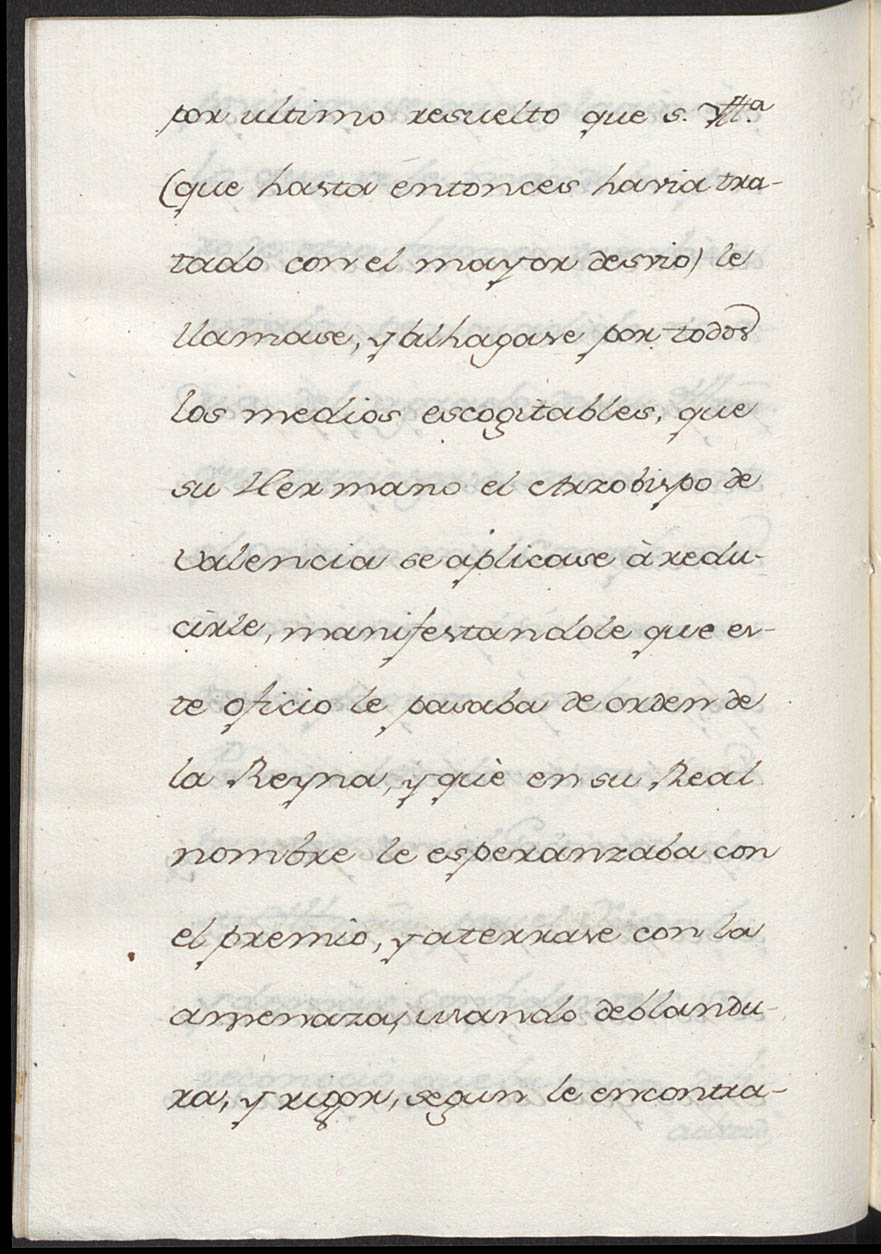 por ultimo resuelto que s. Yll.ª
(que hasta entonces havia tra-
tado con el mayor desvio) le
llamase, y alhagase por todos
los medios escogitables, que
su Hermano el Arzobispo de
Valencia se aplicase à redu-
cirle, manifestandole que es-
te oficio le pasaba de orden de
la Reyna, y què en su Real
nombre le esperanzaba con
el premio, y aterrase con la
amenaza, usando de blandu-
ra, y rigor, segun le encontra-